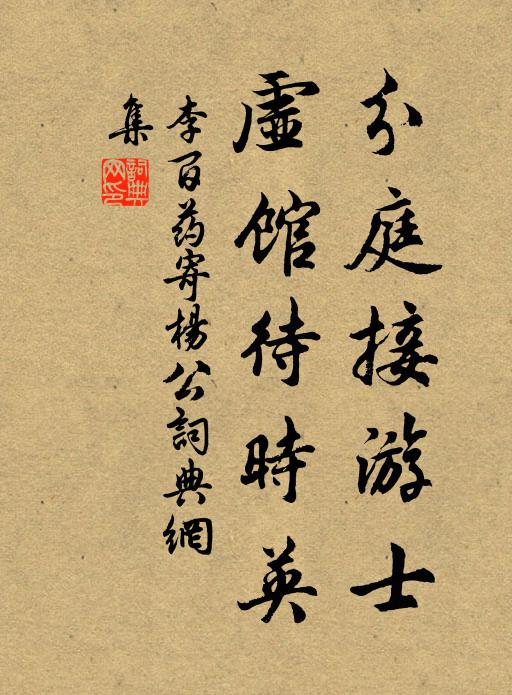 分庭接游士
虛館待時英
李百药寄楊公詞典網
集
詞典
网印